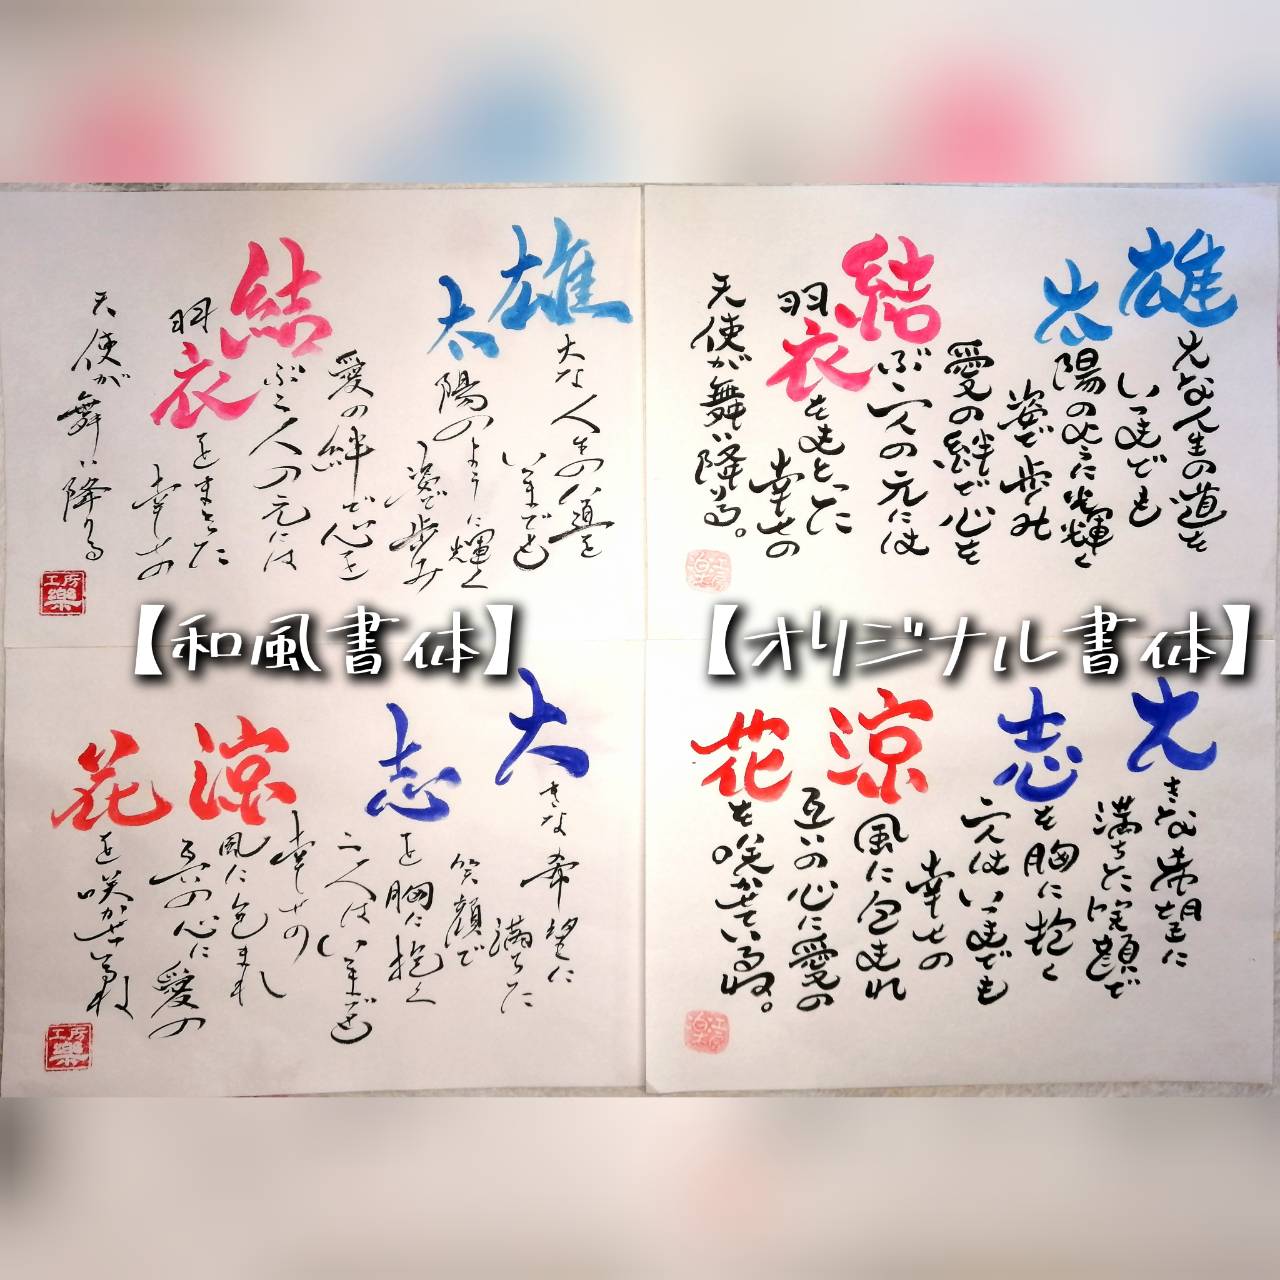 雄大な人生の道を
いつまでも
太陽のように輝く
姿で歩み
愛の絆で心を
結ぶ二人の元には
羽衣をまとった
幸せの
天使が舞い降りる
工房
樂
雄大な人生の道を
いつまでも
太陽のように光輝く
姿で歩み
愛の絆で心を
結ぶ二人の元には
羽衣をまとった
幸せの
天使が舞い降りる。
【和風書体】
【オリジナル書体】
大きな希望に
満ちた
笑顔で
志を胸に抱く
二人はいつまでも
幸せの
涼風に包まれ
互いの心に愛の
花を咲かせているね
工房
樂
大きな希望に
満ちた笑顔で
志を胸に抱く
二人はいつまでも
幸せの
涼風に包まれ
互いの心に愛の
花を咲かせているね。